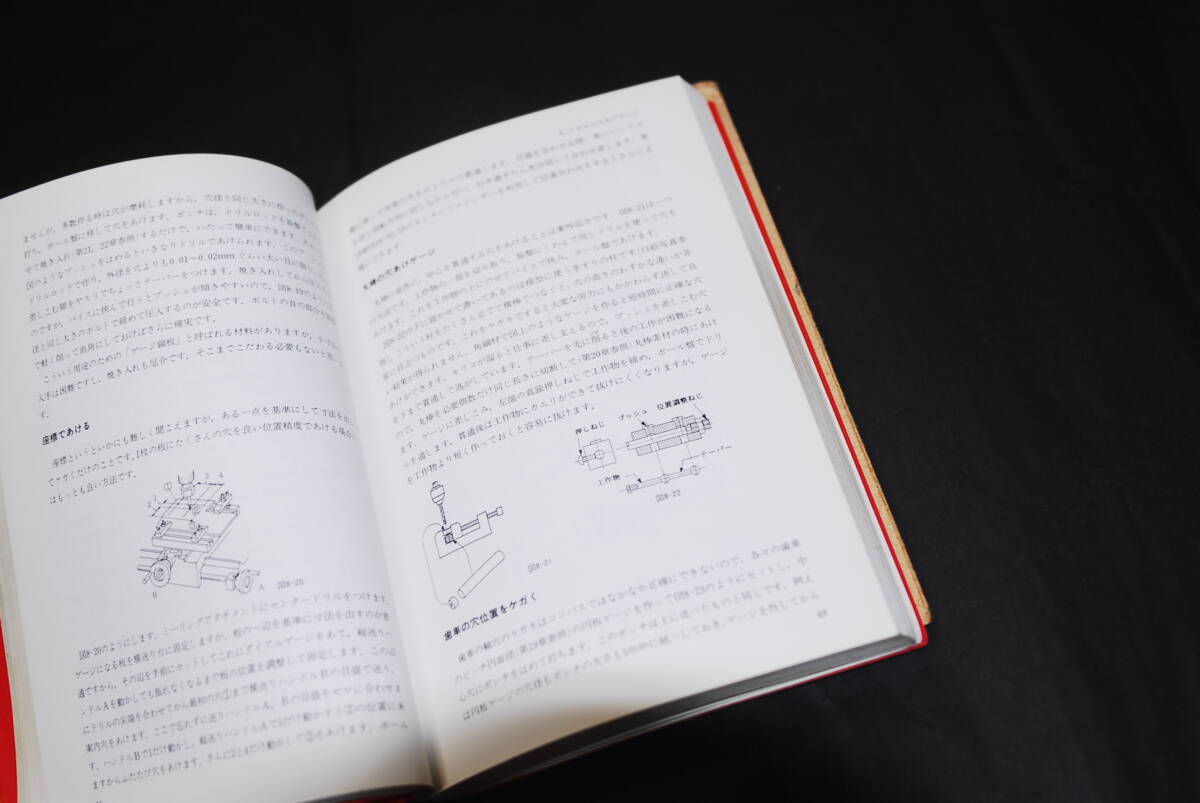 ませんが，多数作る時は穴が摩耗しますから，穴径と同じ太さに
打ち，ボール盤に移して穴をあけます．ポンチは，ドリルロッドを旋盤で
せて焼き入れ(第21，22章参照)するだけで，いたって簡単にできます．
図のようなブッシュをはめるといきなりドリルであけられます．この
ドリルロッドで作り，外径を穴よりも0.01〜0.02mmぐらい太い目に削り，
差しこむ側をヤスリでちょっとテーパーをつけます．焼き入れしてから
のですが，バイスに挟んで行うとブッシュが傾きやすいので，図8-19のように
径と同じ太さのボルトで締めて圧入するのが安全です．ボルトの首の部分を
で軽く削って直角にしておけばさらに確実です．
こういう用途のための「ゲージ鋼板」と呼ばれる材料がありますが，
入手は困難ですし，焼き入れも厄介です．そこまでこだわる必要もないと思
す．
座標であける
座標というといかにも難しく聞こえますが，ある一点を基準にして寸法を
てケガくだけのことです．1枚の板にたくさんの穴を良い位置精度であける場合に
はもっとも良い方法です．
1 2 3 4
B A
図8-20
図8-20のようにします．ミーリングアタチメントにセンタードリルをつけます．
ゲージになる板を横送り台に固定しますが，板の一辺を基準に寸法を出すのが普
通ですから，その辺を手前にセットしてこれにダイアルゲージをあて，縦送りハ
ンドルAを動かしても振れなくなるまで板の位置を調整して固定します．この辺
にドリルの尖端を合わせてから最初の穴①まで横送りハンドルBの目盛で送り，
案内穴をあけます．ここで忘れずに送りハンドルA，Bの目盛をゼロに合わせま
す．ハンドルBで1だけ動かし，縦送りハンドルAで2だけ動かすと②の位置に来
ますからふたたび穴をあけます．さらに3と4だけ動かして③をあけます．ボール
丸棒の穴あけゲージ
丸棒に直角に，中心を貫通する穴をあけることは案外厄介です．図8-21は一つ
の方法です．工作物の一部を切り取り，旋盤にくわえて同じドリルを使って穴を
あけます．これを工作物の上にのせてバイスで挟み，ボール盤であけます．
図8-22の下に寝かせて書いてあるのは模型に使う手すりの柱です(口絵写真参
照)．こういう柱をたくさん立てて横棒でつなぐと，穴の高さのわずかな違いが非
常に目立つものです．これをケガキですると大変な労力にもかかわらず決して良
い結果が得られません．角鋼材で図上のようなゲージを作ると短時間に正確な穴
あけができます．キリコが溜ると仕事に差し支えるので，ブッシュを差しこむ穴
を下まで貫通して逃がしています．テーパーを先に削ると後の工作が困難になる
ので，丸棒を必要個数だけ同じ長さに切断して(第20章参照)丸棒素材の時にあけ
ます．ゲージに差しこみ，左端の真鍮押しねじで工作物を締め，ボール盤でドリ
ルを通します．貫通後は工作物にカエリができて抜けにくくなりますが，ゲージ
を工作物より短く作っておくと容易に抜けます．
押しねじ
ブッシュ
位置調整ねじ
工作物
テーパー
図8-22
図8-21
歯車の穴位置をケガく
歯車の軸穴のケガキはコンパスではなかなか正確にできないので，各々の歯車
のピッチ円直径(第19章参照)の円板ゲージを作って図8-23のようにセットし，中
心穴にポンチをはめて打ちます．このポンチは上に述べたものと同じです．例え
ば円板ゲージの穴径もポンチの太さも5mmに統一しておき，ゲージを外してから
49